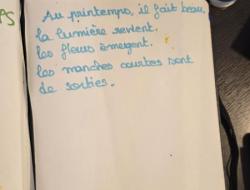 AS
Au printemps, il fait beau,
la lumière revient.
les fleurs émergent.
les manches courtes sont
de sorties.